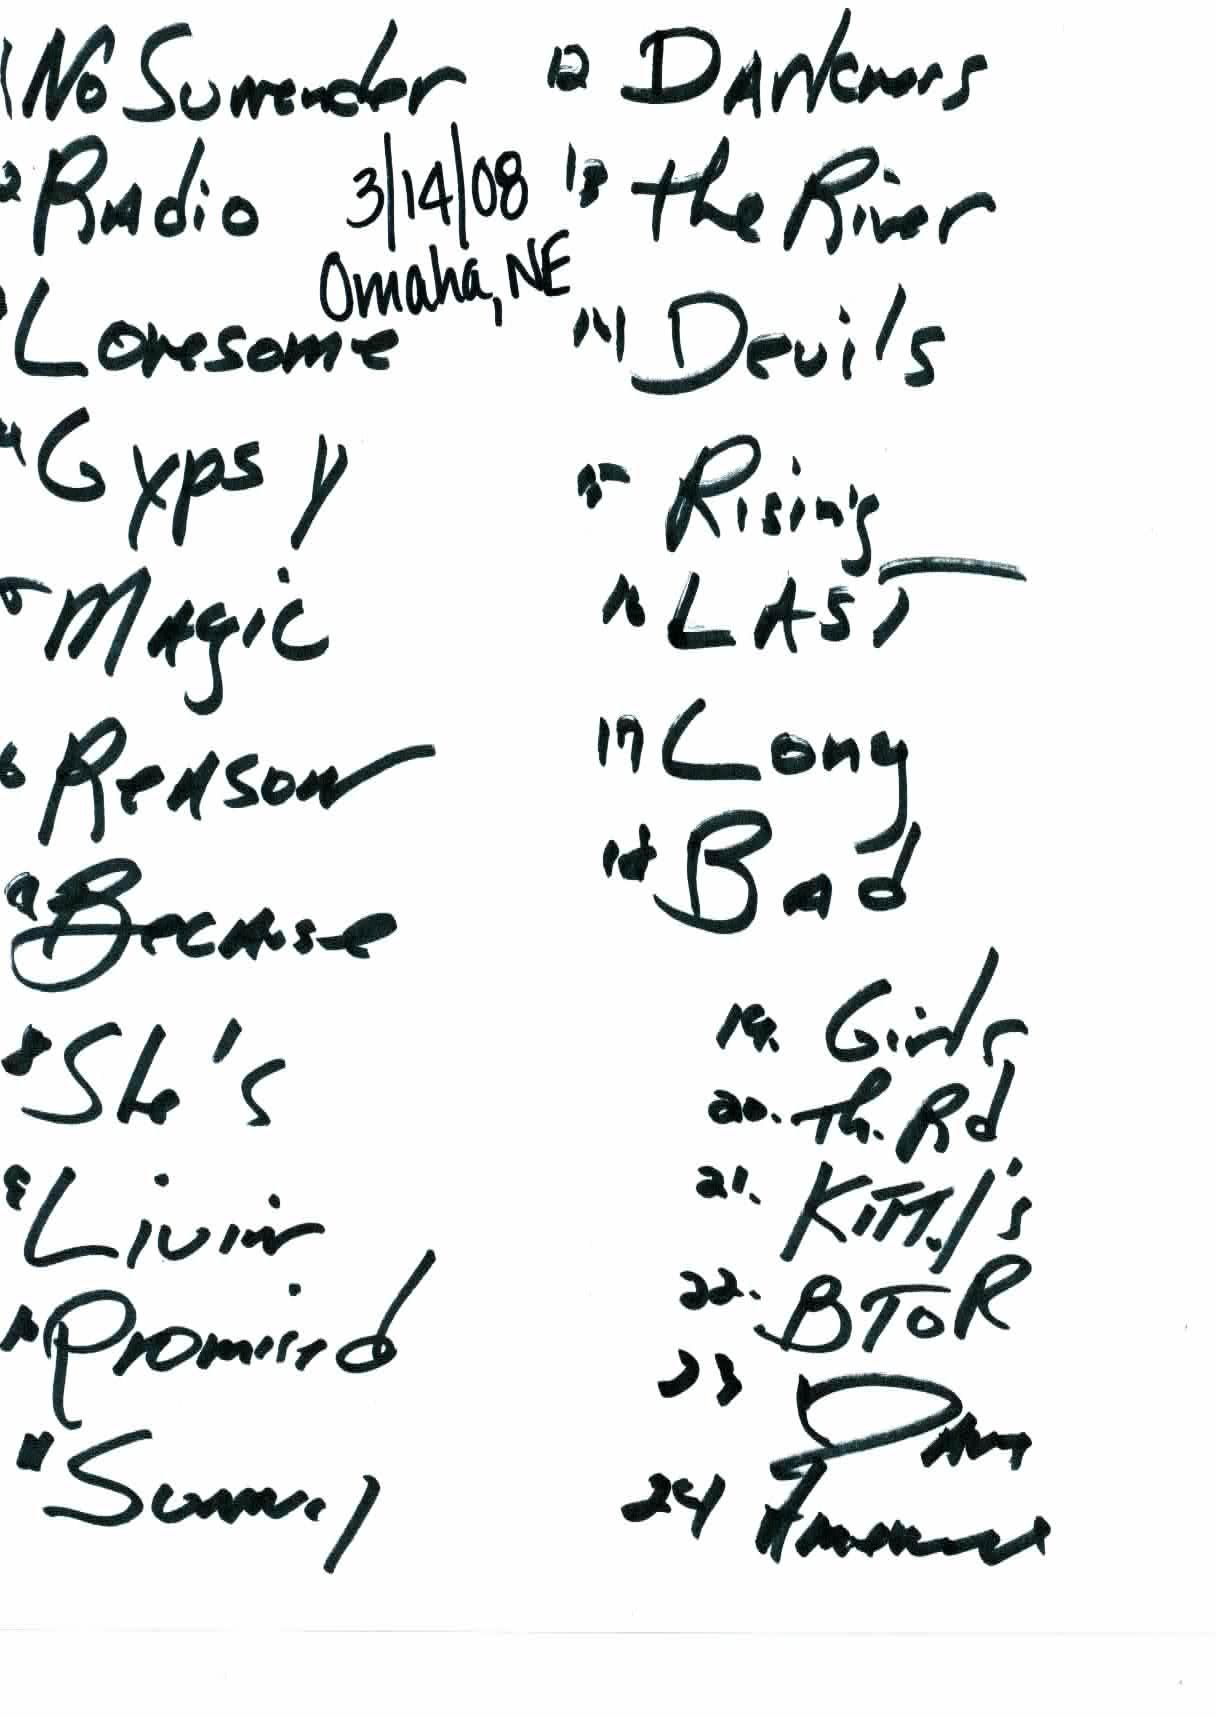 1 No Surrender
2 Radio
3/14/08
Omaha, NE
Lonesome
4 Gypsy
5 Magic
6 Reason
Because
8 She's
9 Livin
10 Promised
11 Sunny
12 Darkness
13 the River
14 Devil's
15 Rising
16 LAST
17 Long
18 Bad
19. Girls
20. Th. Rd
21. Kitty's
22. BTOR
23 Danc
24 American